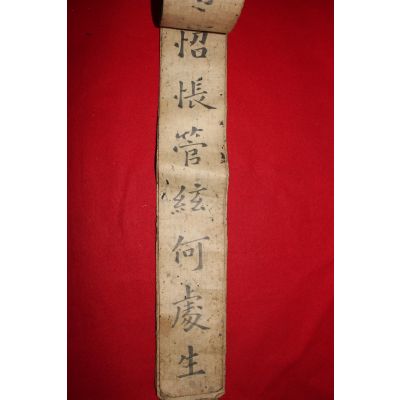 怊悵管絃何處生